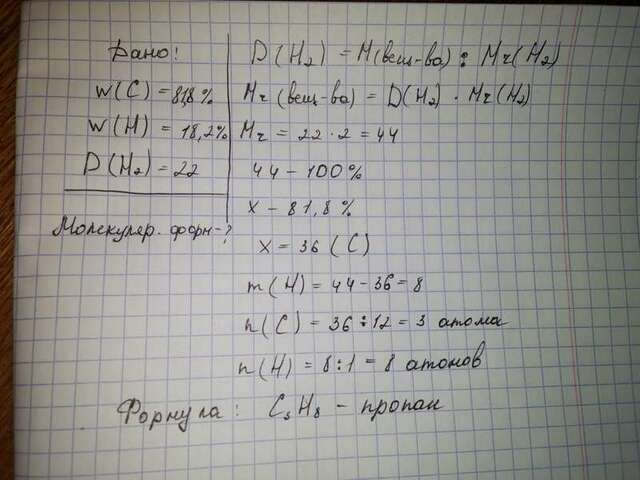 Дано:
w(C) = 81,8%
w(H) = 18,2%
D(H₂) = 22
Молекуляр. форм-?
D(H₂) = M(вещ-ва) : Mr(H₂)
Mr(вещ-ва) = D(H₂) · Mr(H₂)
Mr = 22 · 2 = 44
44 – 100%
x – 81,8%
x = 36 (C)
m(H) = 44 – 36 = 8
n(C) = 36 : 12 = 3 атома
n(H) = 8 : 1 = 8 атомов
Формула: C₃H₈ – пропан